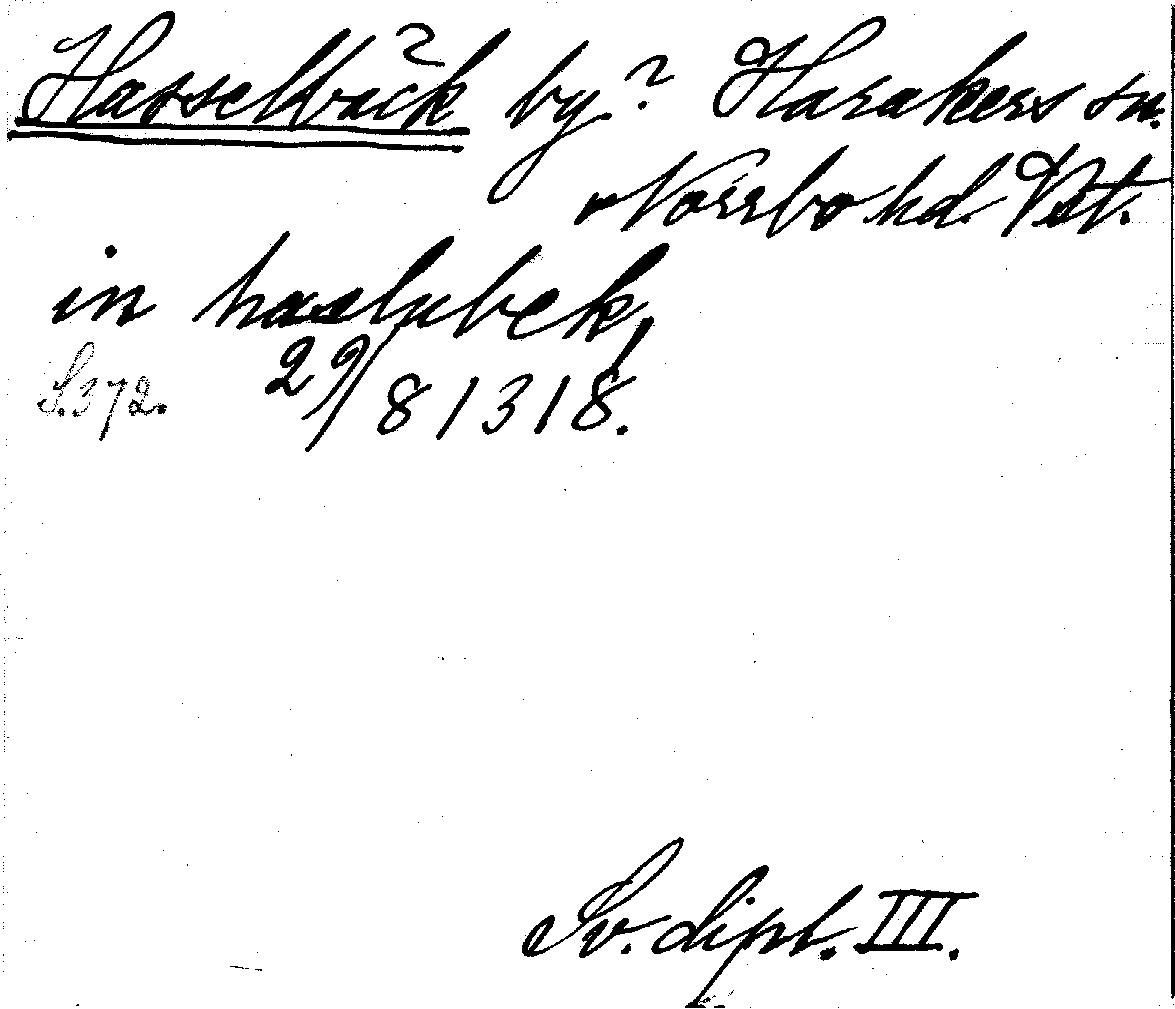 Hasselbäck by? Harakers sn.
Norrbo hd. Vst.
in haslubek,
S. 372. 29/8 1318.
Sv. dipl. III.